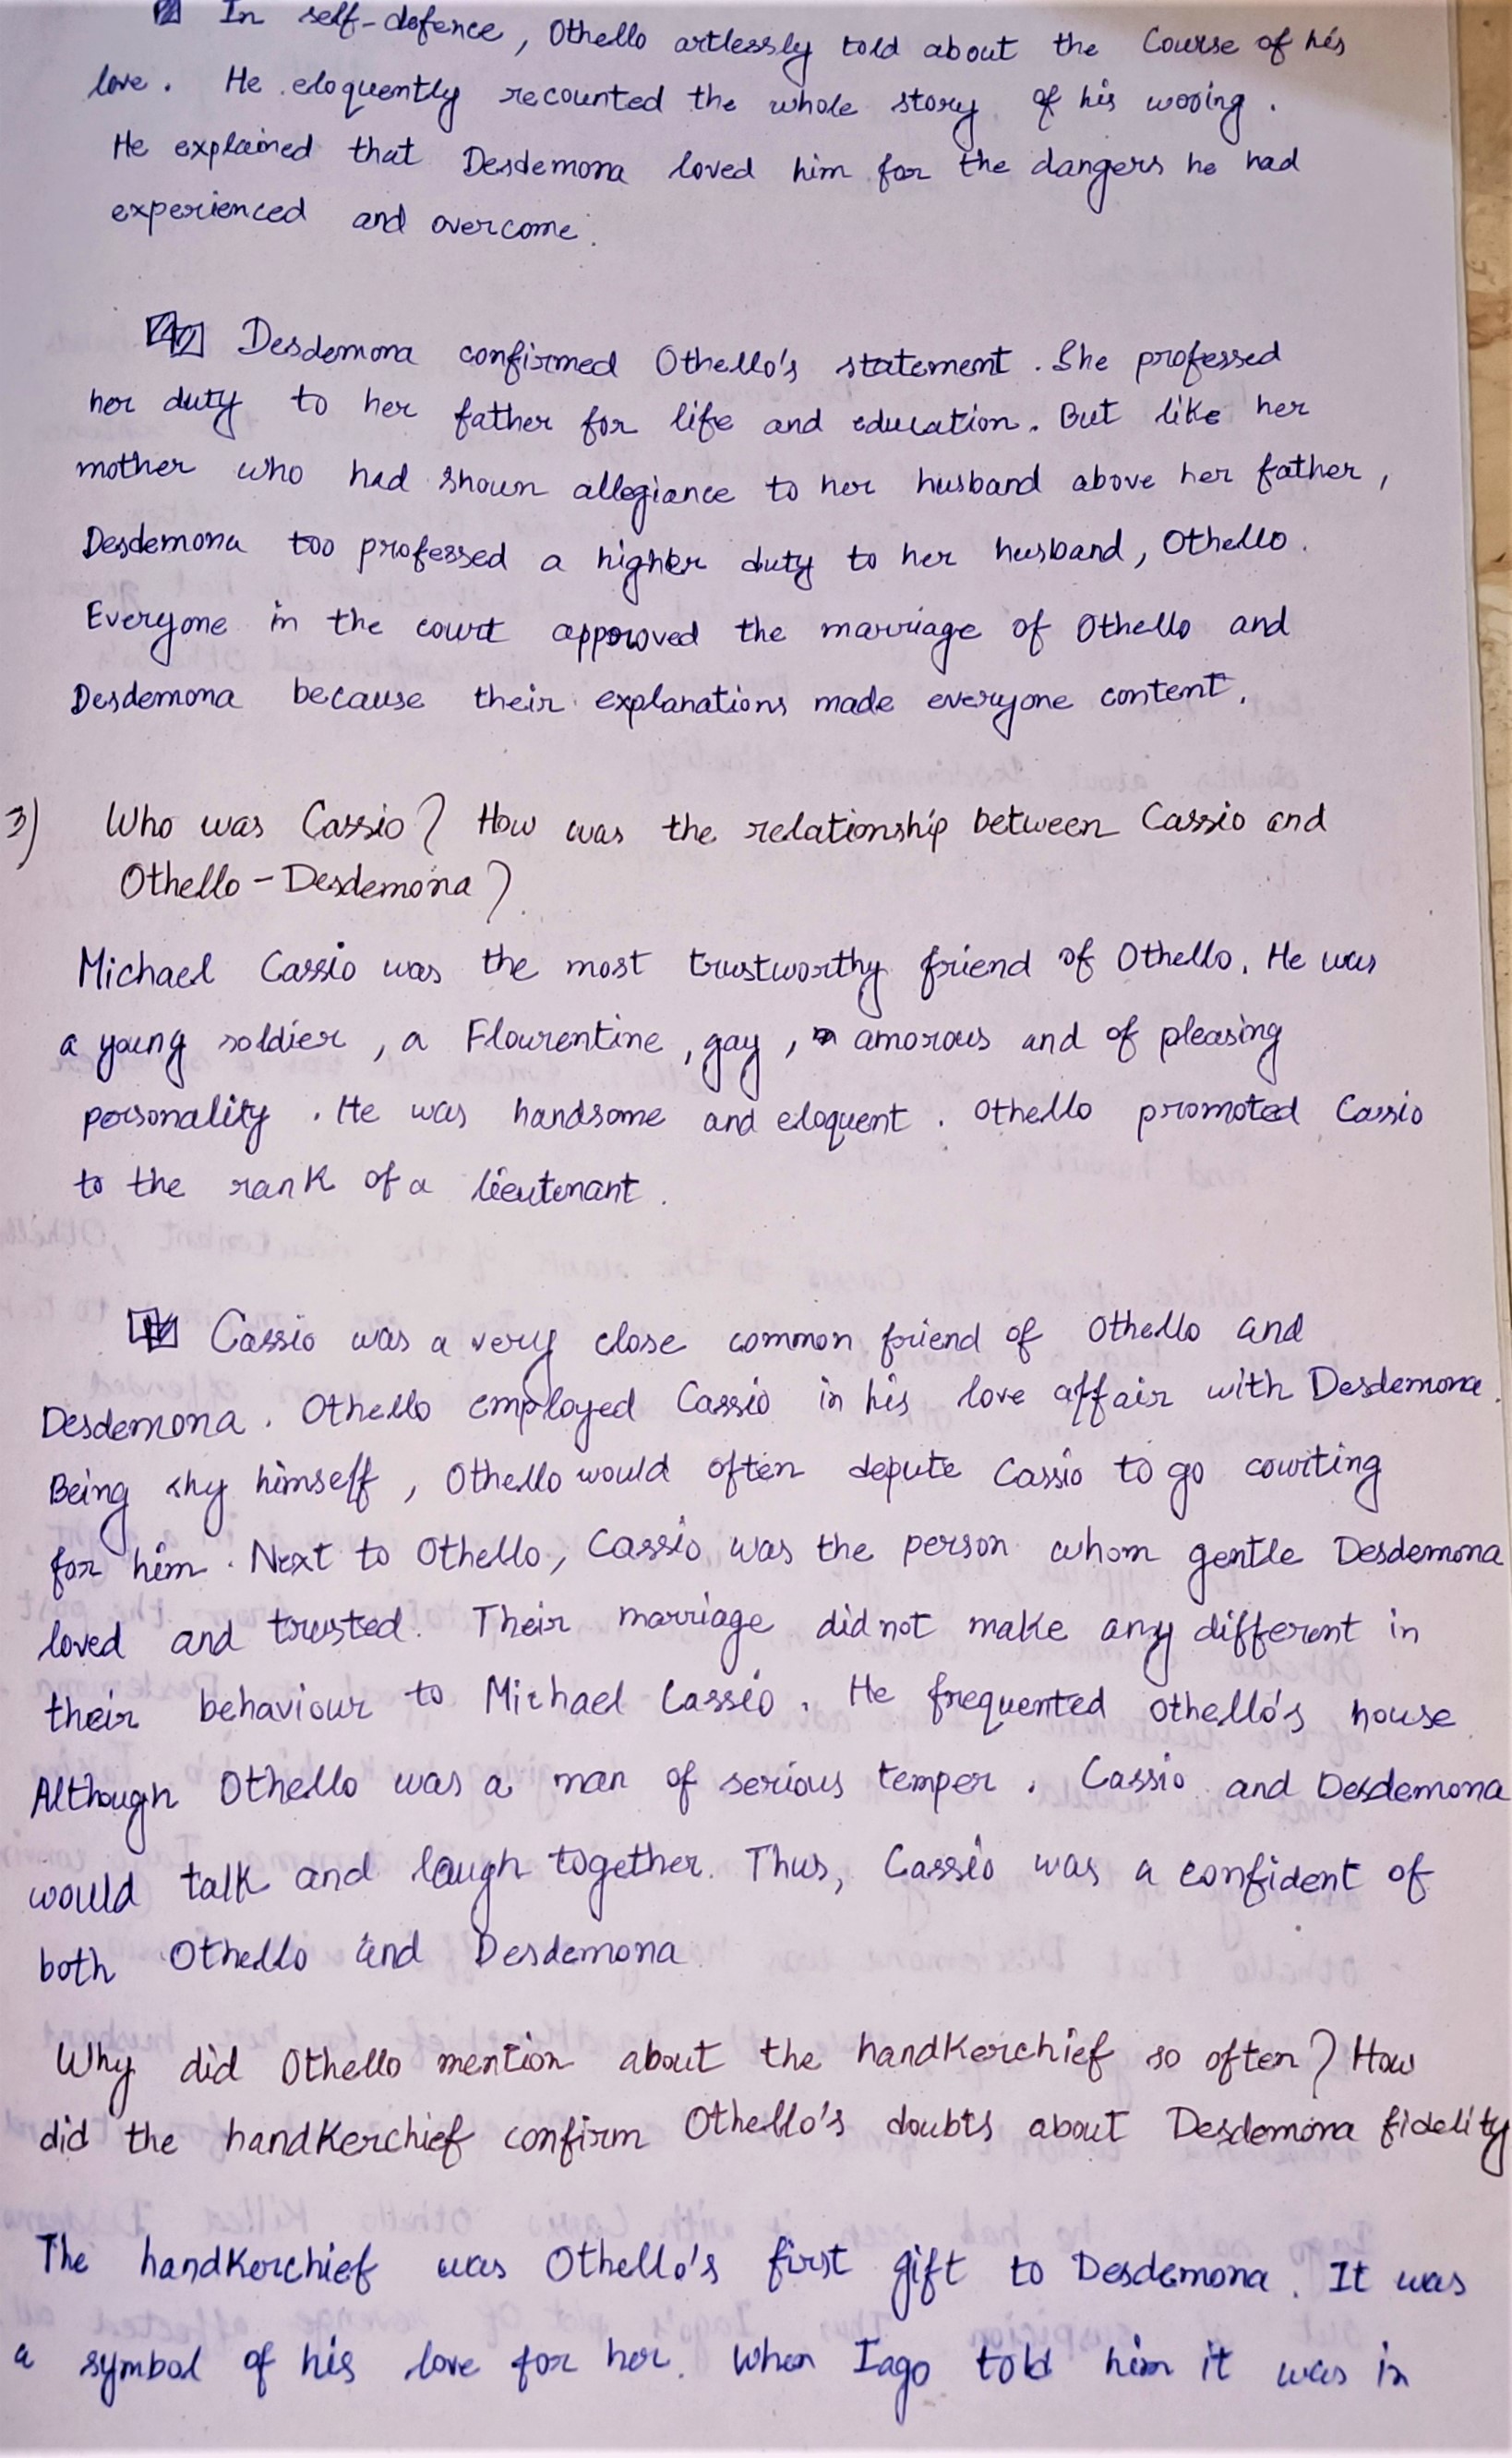 In self-defence, Othello artlessly told about the Course of his
love. He eloquently recounted the whole story of his wooing.
He explained that Desdemona loved him for the dangers he had
experienced and overcome.
Desdemona confirmed Othello's statement. She professed
her duty to her father for life and education. But like her
mother who had shown allegiance to her husband above her father,
Desdemona too professed a higher duty to her husband, Othello.
Everyone in the court approved the marriage of Othello and
Desdemona because their explanations made everyone content.
3) Who was Cassio? How was the relationship between Cassio and
Othello-Desdemona?
Michael Cassio was the most trustworthy friend of Othello. He was
a young soldier, a Flourentine, gay, amorous and of pleasing
personality. He was handsome and eloquent. Othello promoted Cassio
to the rank of a lieutenant.
Cassio was a very close common friend of Othello and
Desdemona. Othello employed Cassio in his love affair with Desdemona.
Being shy himself, Othello would often depute Cassio to go courting
for him. Next to Othello, Cassio was the person whom gentle Desdemona
loved and trusted. Their marriage did not make any different in
their behaviour to Michael Cassio. He frequented Othello's house
Although Othello was a man of serious temper. Cassio and Desdemona
would talk and laugh together. Thus, Cassio was a confident of
both Othello and Desdemona
Why did Othello mention about the handkerchief so often? How
did the handkerchief confirm Othello's doubts about Desdemona fidelity
The handkerchief was Othello's first gift to Desdemona. It was
a symbol of his love for her. When Iago told him it was in